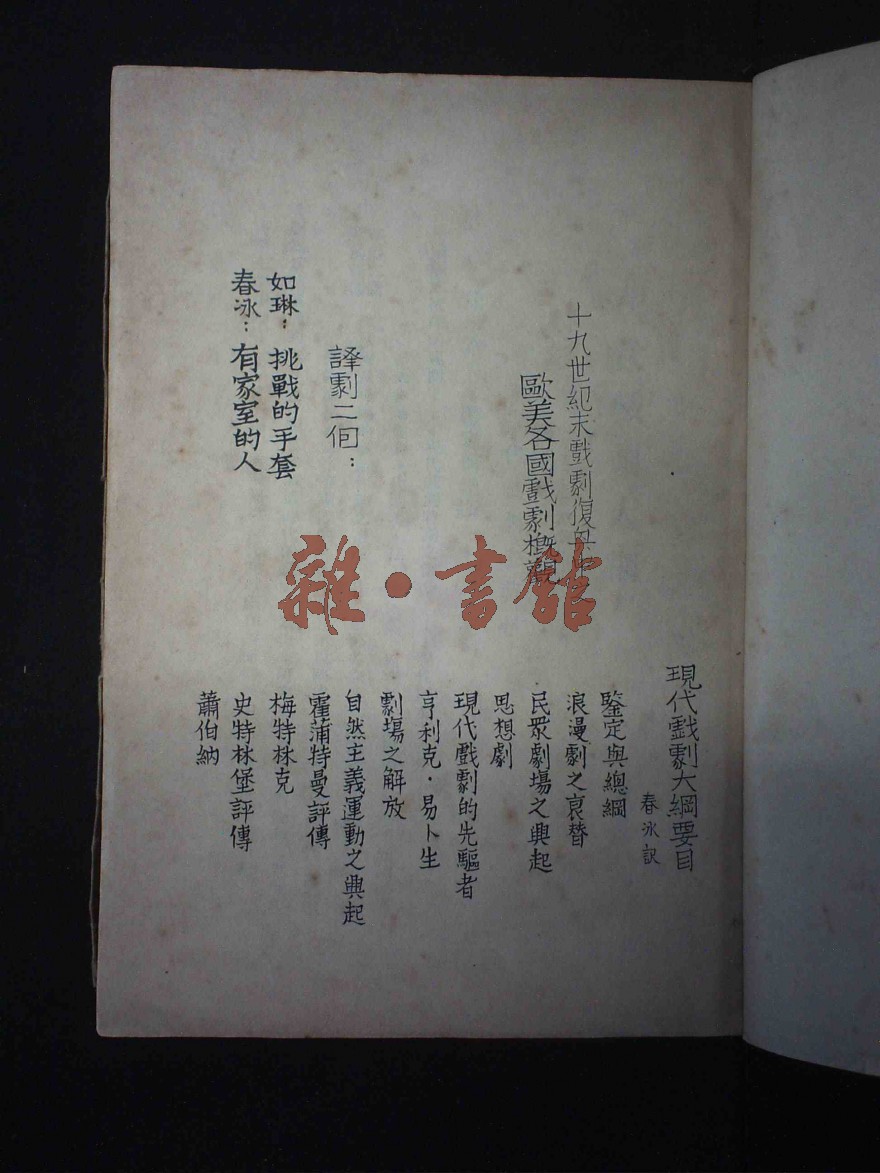 現代戲劇大綱要目
春冰訳
鑒定與總綱
浪漫劇之衰替
民眾劇場之興起
思想劇
現代戲劇的先驅者
亨利克·易卜生
劇場之解放
自然主義運動之興起
霍蒲特曼評傳
梅特林克
史特林堡評傳
蕭伯納
十九世紀末戲劇復興
歐美各國戲劇概觀
譯劇二個：
如琳：挑戰的手套
春冰：有家室的人
雜·書館